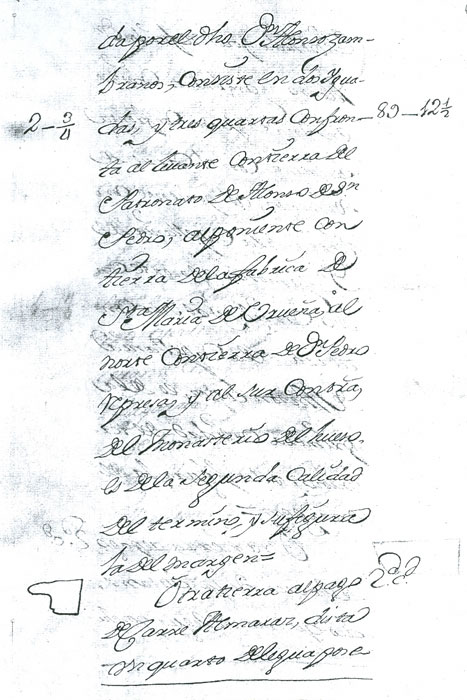 da por el dho Dn. Alonso Zam-
brano, Consiste en dos Igua-
2 - 3/4 das, y tres quartas Confron- 89 - 12 1/2
ta al levante Con tierra del
Patronato de Alonso de Sn
Pedro, al poniente con
tierra de la fabrica de
Sta Maria de Urueña, al
norte Con tierra de Dn Pedro
represa, y al sur Con tra,
del Monasterio del bueso,
es de la Segunda Calidad
del termino, y su figura
la del margen=
Otra tierra al pago
de Carre Almaraz, dista
un quarto de legua por e